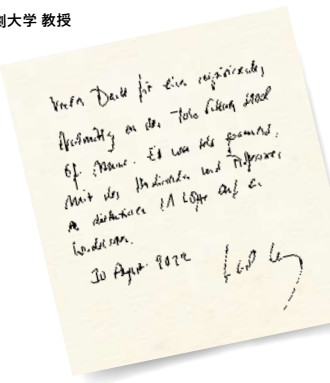 大学 教授
Vielen Dank für einen inspirierenden
Nachmittag an der Toho
of Music. Es war sehr spannend,
mit den Studierenden und Professoren
zu diskutieren. Ich hoffe auf ein
Wiedersehen.
30 August 2022